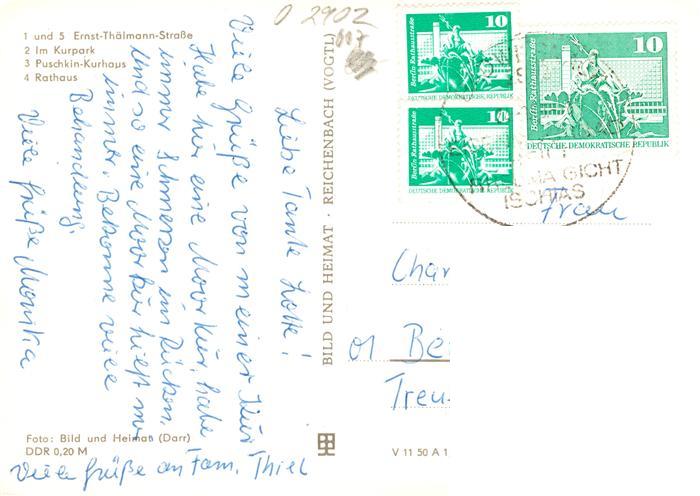 1 und 5 Ernst-Thälmann-Straße
2 Im Kurpark
3 Puschkin-Kurhaus
4 Rathaus
Liebe Tante Lotte!
Viele Grüße von meiner Kur
Habe hier eine Moorkur, habe
immer Schmerzen im Rücken.
Und so eine Moorkur hielft mir
immer. Bekomme viele
Behandlung.
Viele Grüße Monika
Viele Grüße an Fam. Thiel
Foto: Bild und Heimat (Darr)
DDR 0,20 M
BILD UND HEIMAT · REICHENBACH (VOGTL)
V 11 50 A 1
0 2902
117
10
Berlin, Rathausstraße
DEUTSCHE DEMOKRATISCHE REPUBLIK
10
Berlin, Rathausstraße
DEUTSCHE DEMOKRATISCHE REPUBLIK
10
Berlin, Rathausstraße
DEUTSCHE DEMOKRATISCHE REPUBLIK
GICHT
ISCHIAS
Frau
Char
01 Be
Treu